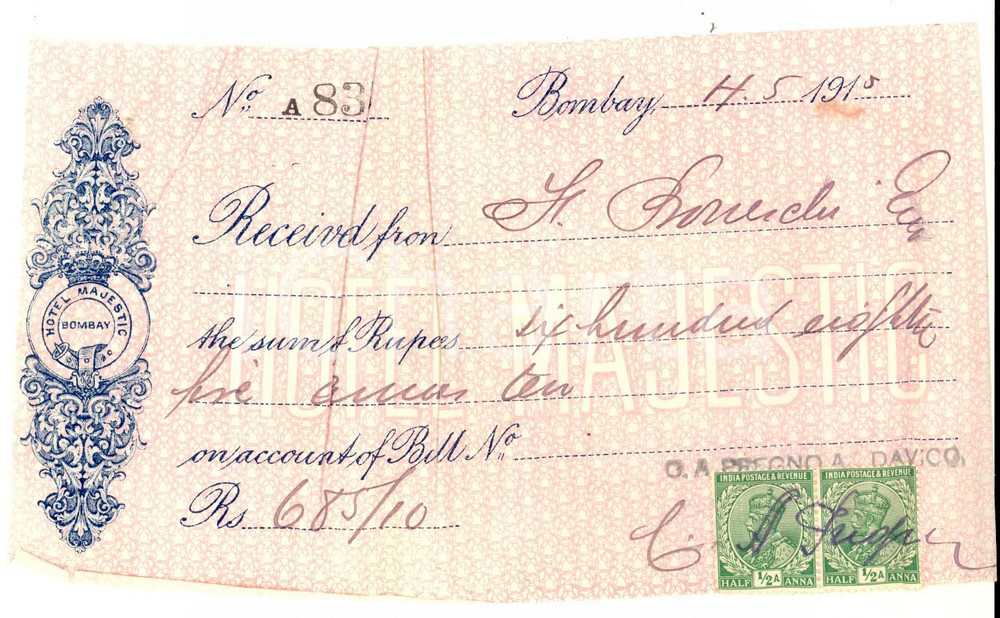 No. A 83
Bombay, 4.5.1915
Received from H. Esq
the sum of Rupees six hundred eighty
five annas ten
on account of Bill No.
Rs 685/10
HOTEL MAJESTIC
BOMBAY
HOTEL MAJESTIC
C. A. PREGNO A. DAV. CO.
C. A.
INDIA POSTAGE & REVENUE
INDIA POSTAGE & REVENUE
HALF ½A ANNA
HALF ½A ANNA